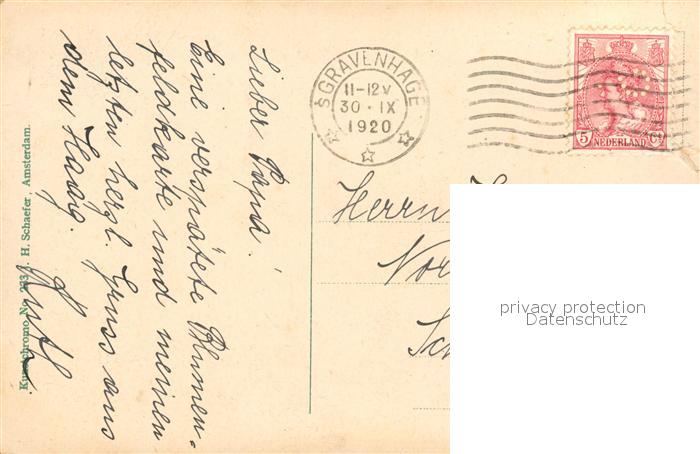 Lieber Papa!
Eine verspätete Blumen-
feldkarte und meinen
letzten herzl. Gruss aus
dem Haag.
Kunstchromo No. H. Schaefer, Amsterdam.
'SGRAVENHAGE
11-12V
30·IX
1920
5 Ct
NEDERLAND
Herrn
privacy protection
Datenschutz